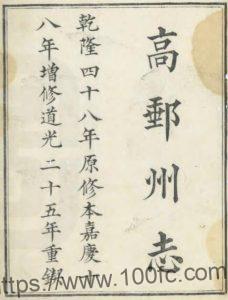 高郵州志
乾隆四十八年原修本嘉慶十
八年增修道光二十五年重鐫
https://www.100fc.com